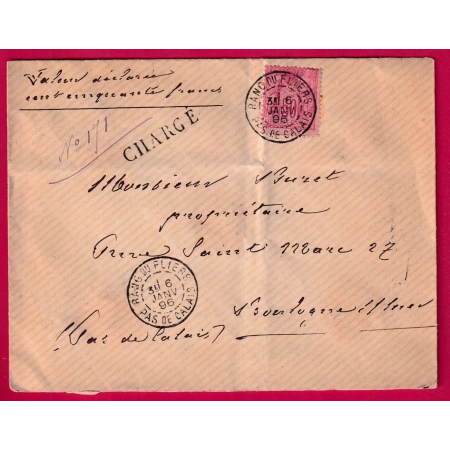 Valeur déclarée
cent cinquante francs
RANG DU FLIERS
3E 6
JANV
96
PAS DE CALAIS
No 1/1
CHARGÉ
Monsieur Buret
propriétaire
Saint Marc 27
RANG DU FLIERS
3E 6
JANV
96
PAS DE CALAIS
Boulogne s/mer
(Pas de Calais)